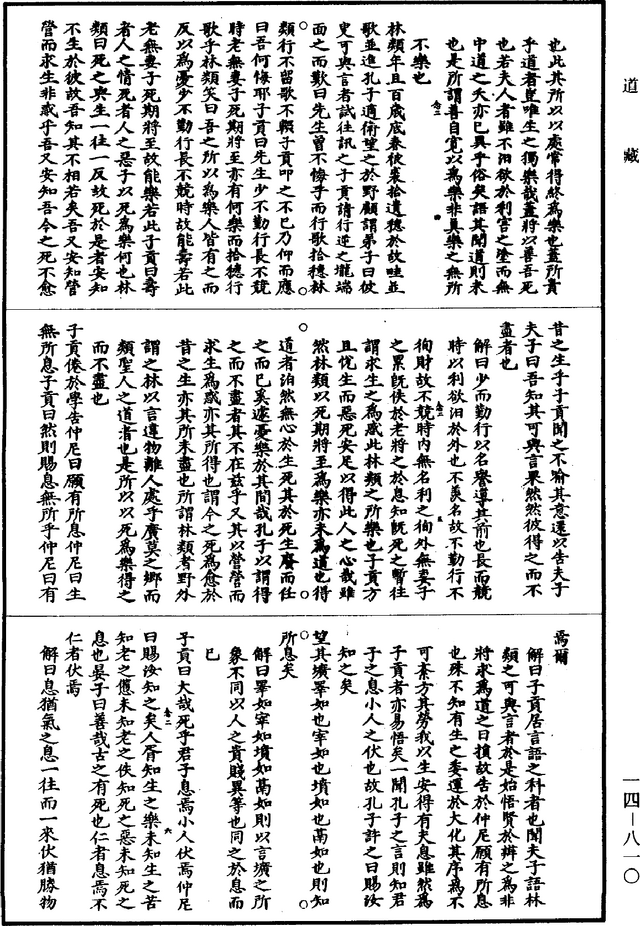 道藏
也此其所以以處常得終爲樂也蓋所貴
乎道者豈唯生之獨樂哉蓋將以善吾死
也若夫人者雖不汨欲於利害之塗而無
中道之夭亦已異乎俗矣語其聞道則未
也是所謂善自寬以爲樂非真樂之無所
不樂也
林類年且百歲底春被裘拾遺穗於故畦並
歌並進孔子適衛望之於野顧謂弟子曰彼
叟可與言者試往訊之子貢請行逆之壠端
面之而歎曰先生曾不悔乎而行歌拾穗林
類行不留歌不輟子貢叩之不已乃仰而應
曰吾何悔耶子貢曰先生少不勤行長不競
時老無妻子死期將至亦有何樂而拾穗行
歌乎林類笑曰吾之所以爲樂人皆有之而
反以爲憂少不勤行長不競時故能壽若此
老無妻子死期將至故能樂若此子貢曰壽
者人之情死者人之惡子以死爲樂何也林
類曰死之與生一往一反故死於是者安知
不生於彼故吾知其不相若矣吾又安知營
營而求生非惑乎吾又安知吾今之死不愈
昔之生乎子貢聞之不喻其意還以告夫子
夫子曰吾知其可與言果然然彼得之而不
盡者也
解曰少而勤行以名譽導其前也長而競
時以利欲汨於外也不羨名故不勤行不
徇財故不競時內無名利之徇外無妻子
之累既佚於老將之於息知既死之暫往
謂求生之爲惑此林類之所樂也子貢方
且恱生而惡死安足以得此人之心哉雖
然林類以死期將至爲樂亦未爲道也得
道者泊然無心於生死其於死生廢而任
之而已奚遽憂樂於其間哉孔子以謂得
之而不盡者其不在茲乎又其以營營而
求生爲惑亦其所得也謂今之死爲愈於
昔之生亦其所未盡也所謂林類者野外
謂之林以言違物離人處乎廣莫之鄉而
類聖人之道者也是所以以死爲樂得之
而不盡也
子貢倦於學告仲尼曰願有所息仲尼曰生
無所息子貢曰然則賜息無所乎仲尼曰有
焉爾
解曰子貢居言語之科者也聞夫子語林
類之可與言者於是始悟賢於辨之爲非
將求爲道之日損故告於仲尼願有所息
也殊不知有生之委運於大化其序爲不
可紊方其勞我以生安得有夫息雖然爲
子貢者亦易悟矣一聞孔子之言則知君
子之息小人之伏也故孔子許之曰賜汝
知之矣
望其壙睪如也宰如也墳如也鬲如也則知
所息矣
解曰睪如宰如墳如鬲如則以言壙之所
象不同以人之貴賤異等也同之於息而
已
子貢曰大哉死乎君子息焉小人伏焉仲尼
曰賜汝知之矣人胥知生之樂未知生之苦
知老之憊未知老之佚知死之惡未知死之
息也晏子曰善哉古之有死也仁者息焉不
仁者伏焉
解曰息猶氣之息一往而一來伏猶勝物
一四—八一〇